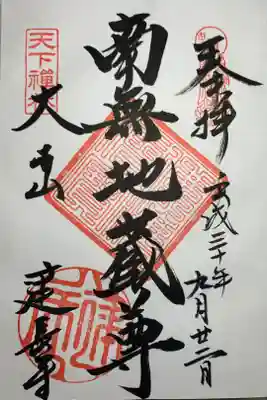 奉拝
平成三十年
九月廿二日
南無地蔵尊
天下禪林
大本山
建長寺